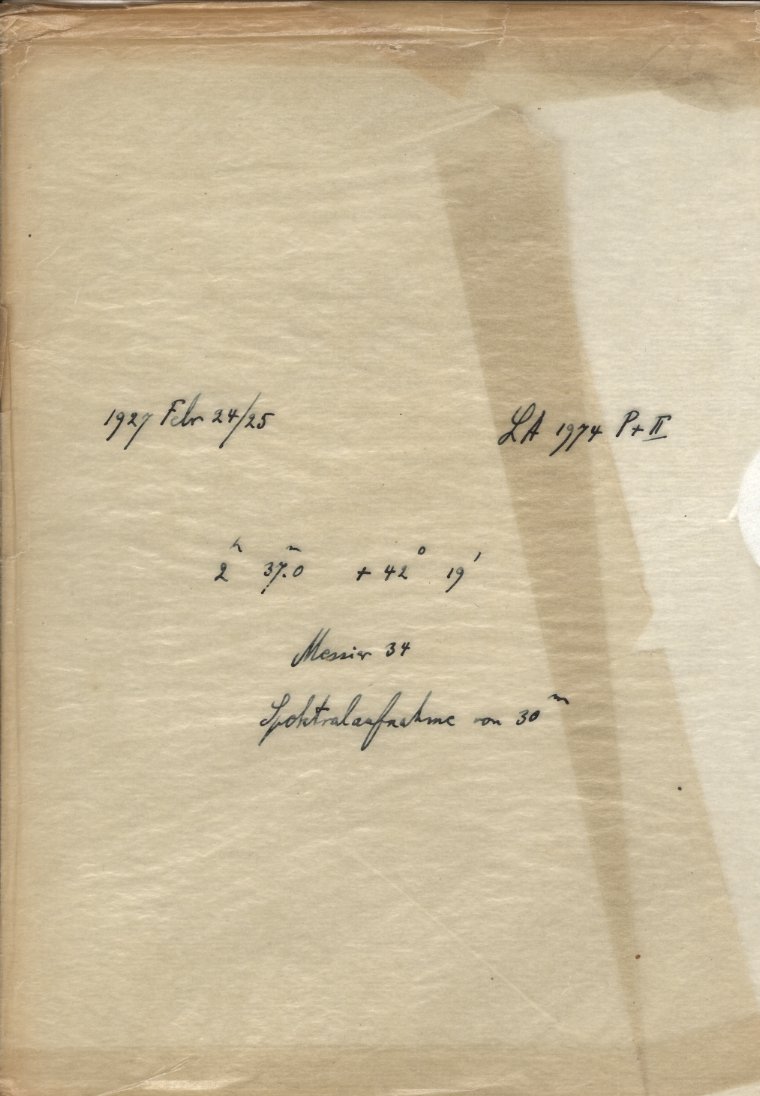 1927 Febr 24/25
LA 1974 P+II
2ʰ 37ᵐ.0 + 42° 19'
Messier 34
Spektralaufnahme von 30ᵐ